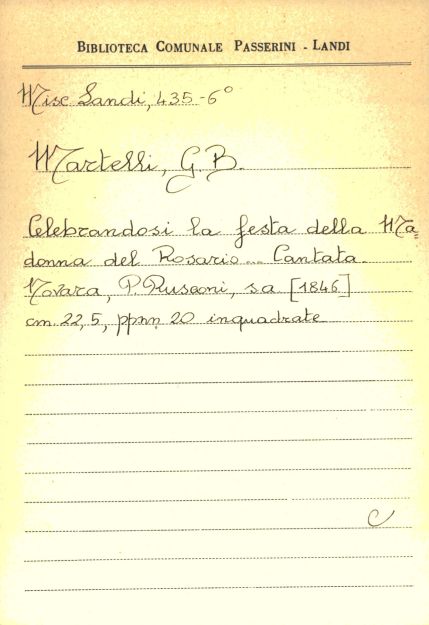 BIBLIOTECA COMUNALE PASSERINI - LANDI
Misc Landi, 435-6°
Martelli, G. B.
Celebrandosi la festa della Ma=
donna del Rosario... Cantata.
Novara, P. Rusconi, s a [1846]
cm. 22,5, ppnn 20 inquadrate
C